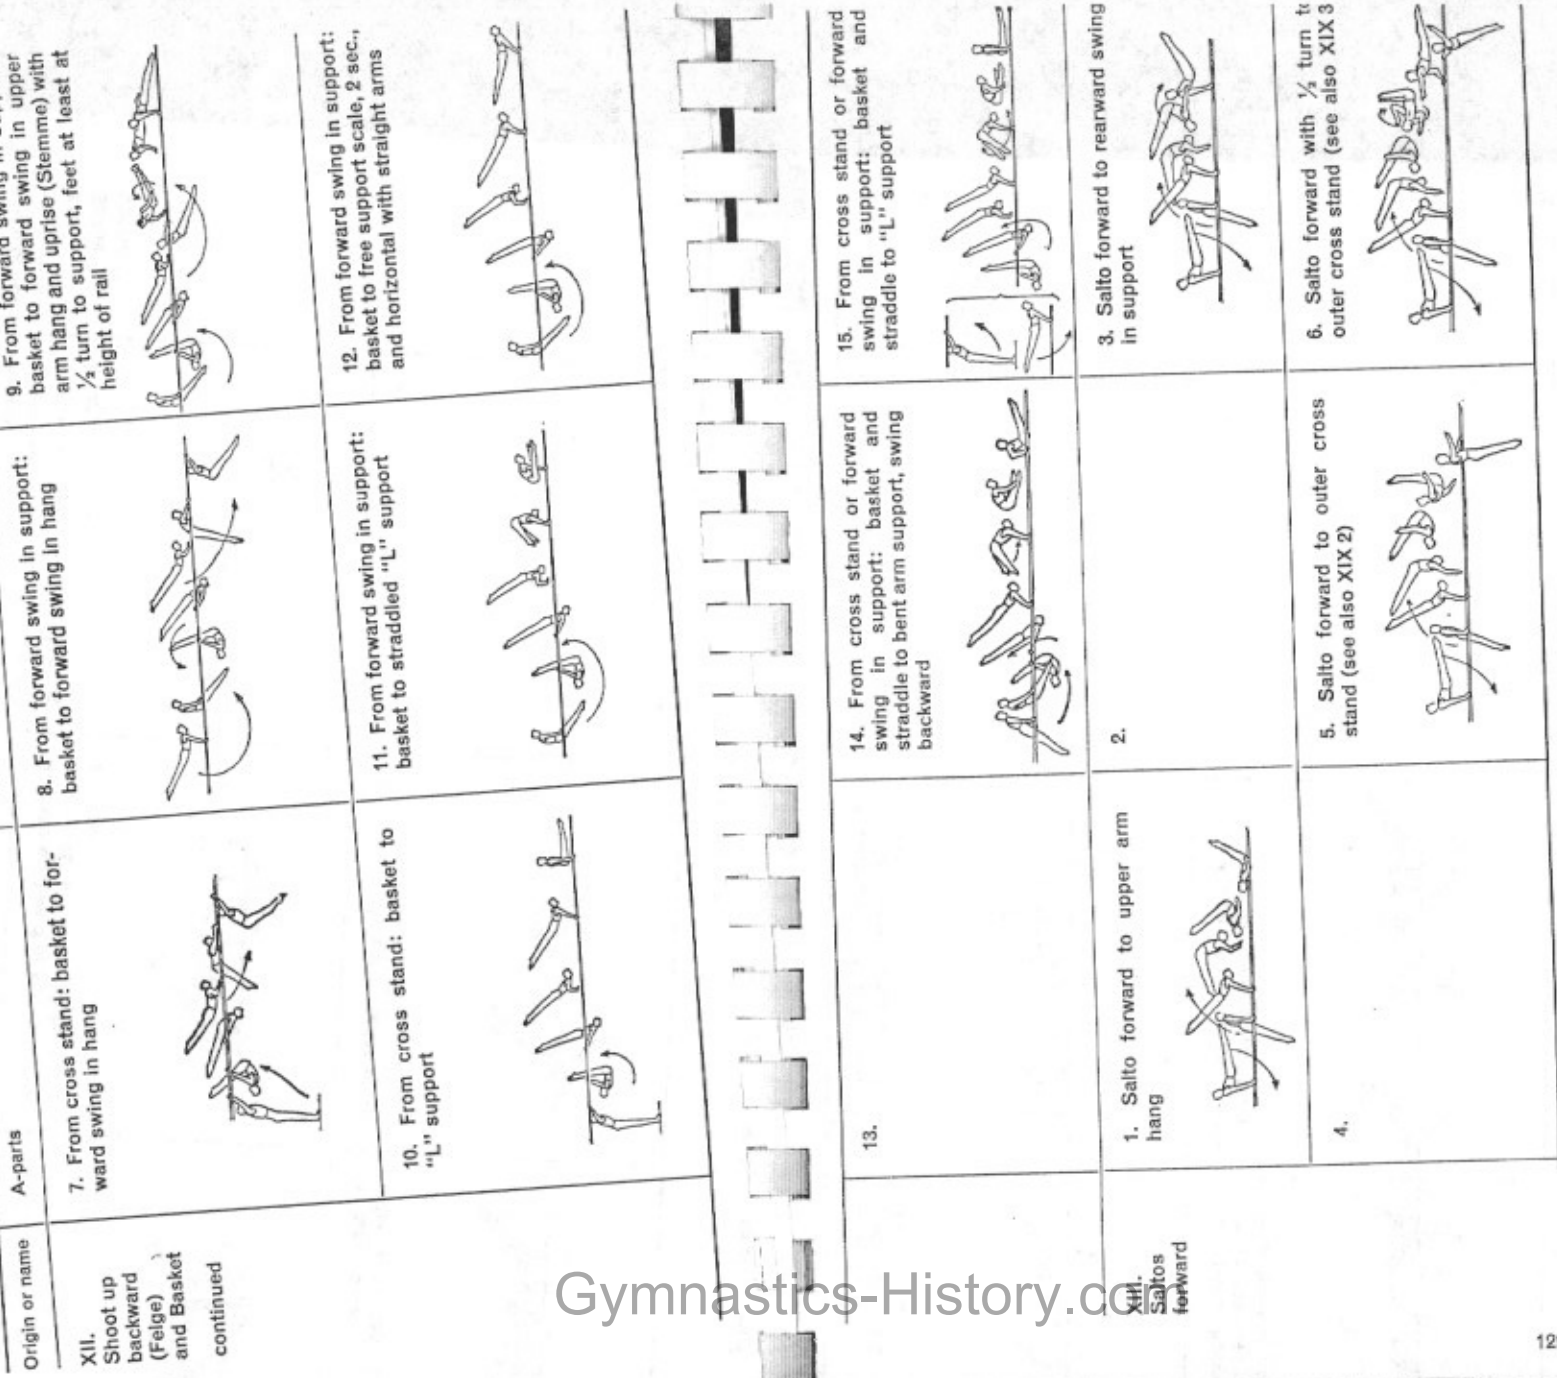 Origin or name
A-parts
XII.
Shoot up
backward
(Felge)
and Basket
continued
7. From cross stand: basket to for-
ward swing in hang
8. From forward swing in support:
basket to forward swing in hang
9. From forward swing in
basket to forward swing in upper
arm hang and uprise (Stemme) with
½ turn to support, feet at least at
height of rail
10. From cross stand: basket to
"L" support
11. From forward swing in support:
basket to straddled "L" support
12. From forward swing in support:
basket to free support scale, 2 sec.,
and horizontal with straight arms
13.
14. From cross stand or forward
swing in support: basket and
straddle to bent arm support, swing
backward
15. From cross stand or forward
swing in support: basket and
straddle to "L" support
XIII.
Saltos
forward
1. Salto forward to upper arm
hang
2.
3. Salto forward to rearward swing
in support
4.
5. Salto forward to outer cross
stand (see also XIX 2)
6. Salto forward with ½ turn
outer cross stand (see also XIX 3
12
Gymnastics-History.com